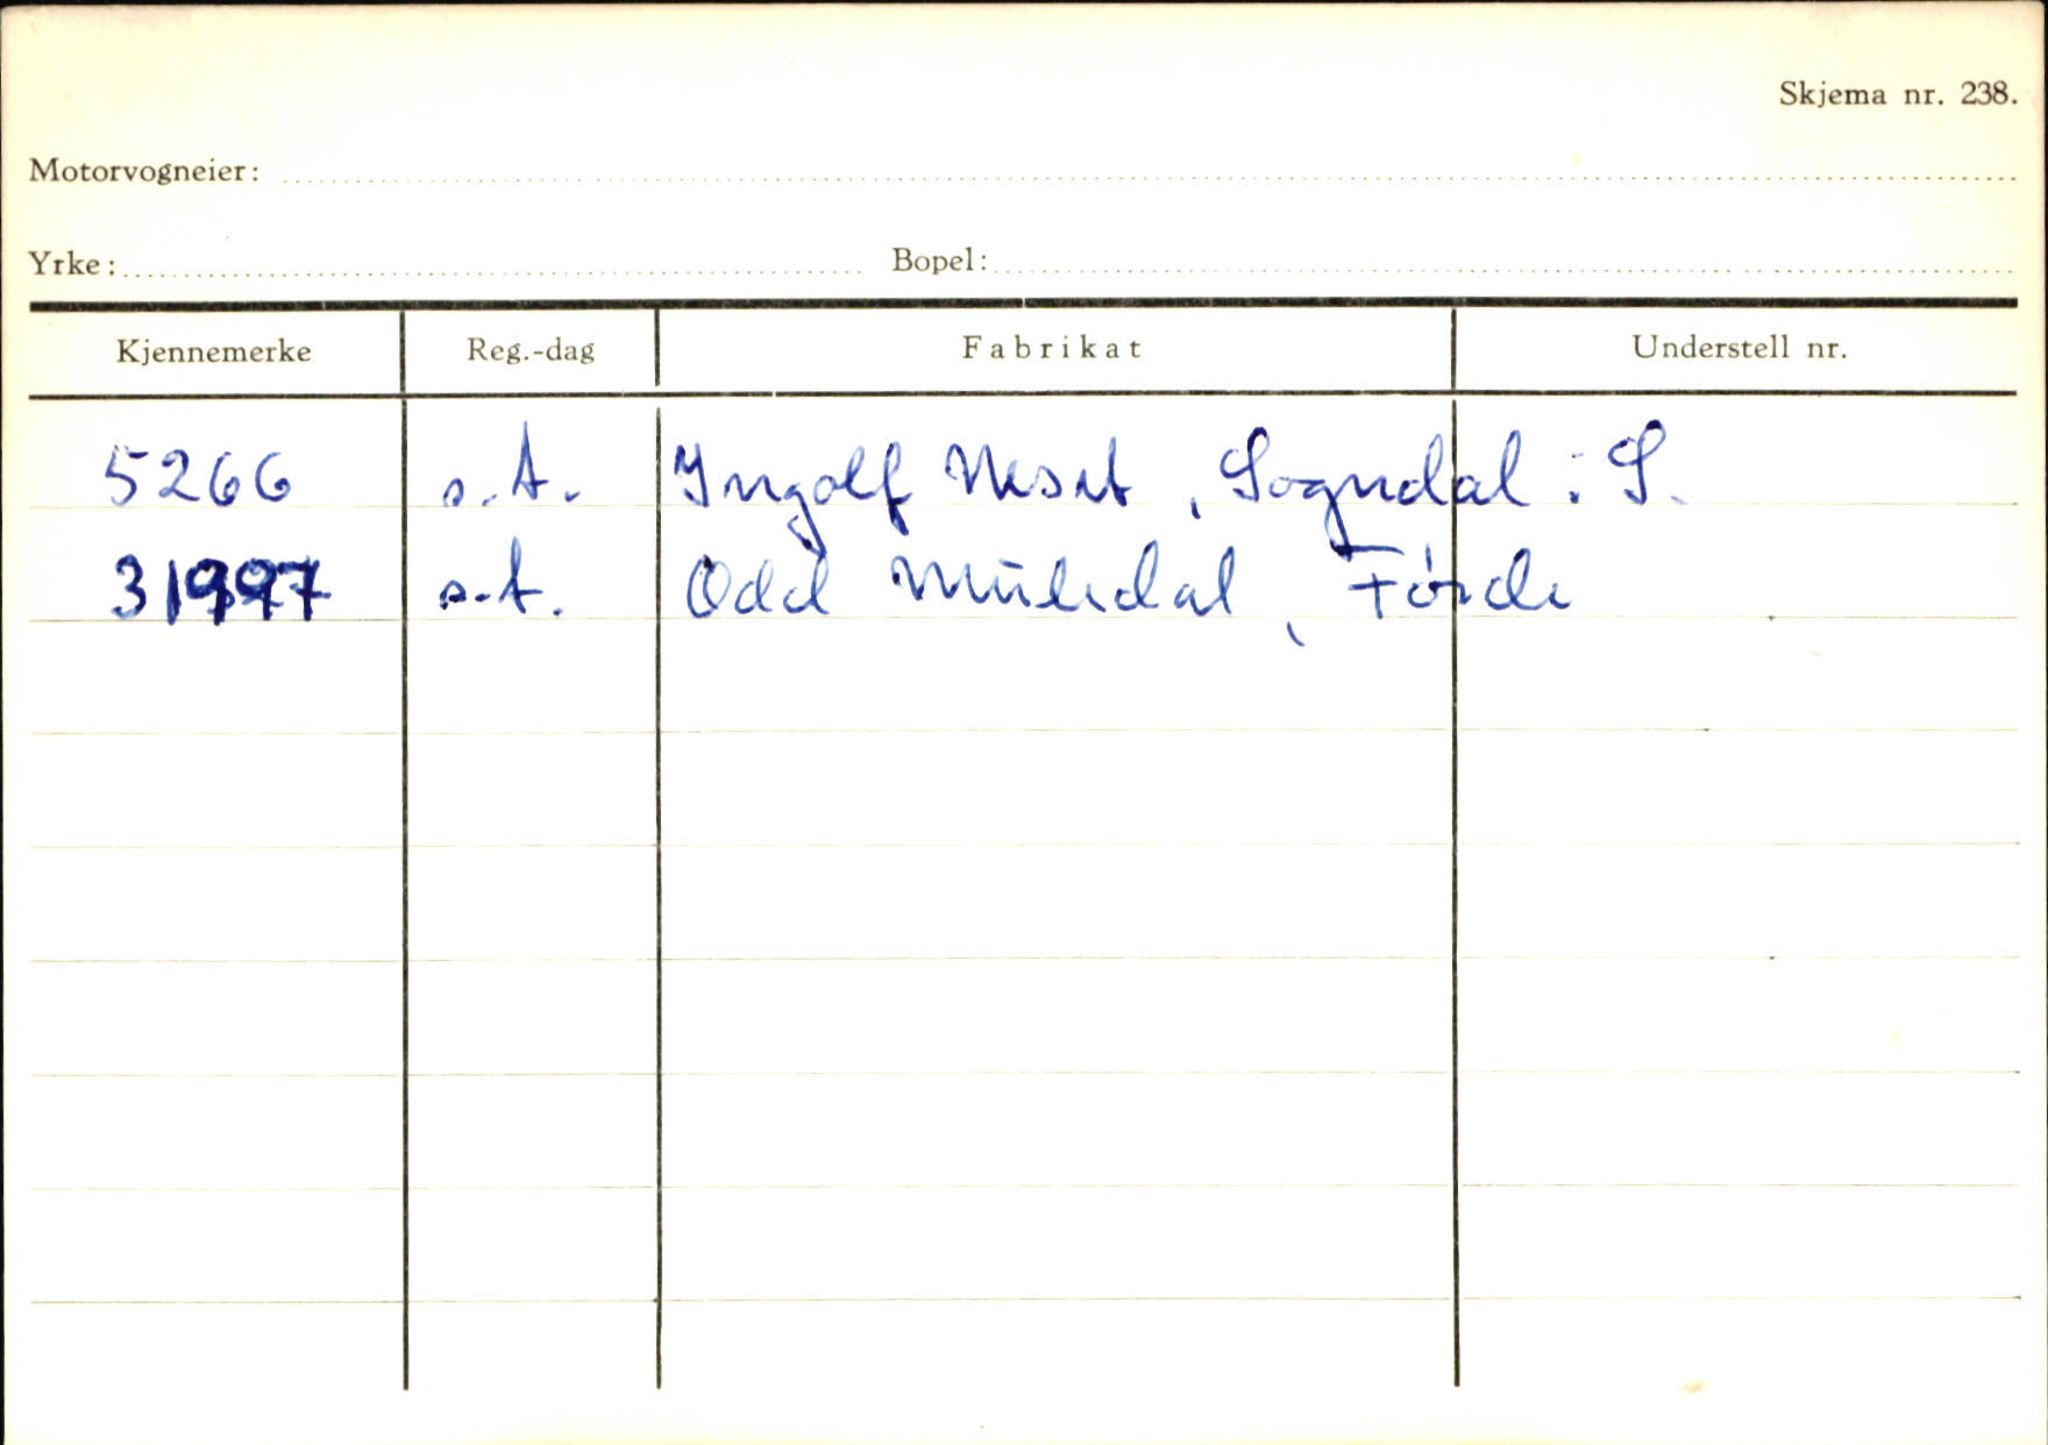 Skjema nr. 238.
Motorvogneier:
Yrke: Bopel:
Kjennemerke Reg.-dag Fabrikat Understell nr.
5266 s.A. Ingolf Neset, Sogndal i S.
31997 s.A. Odd , Førde